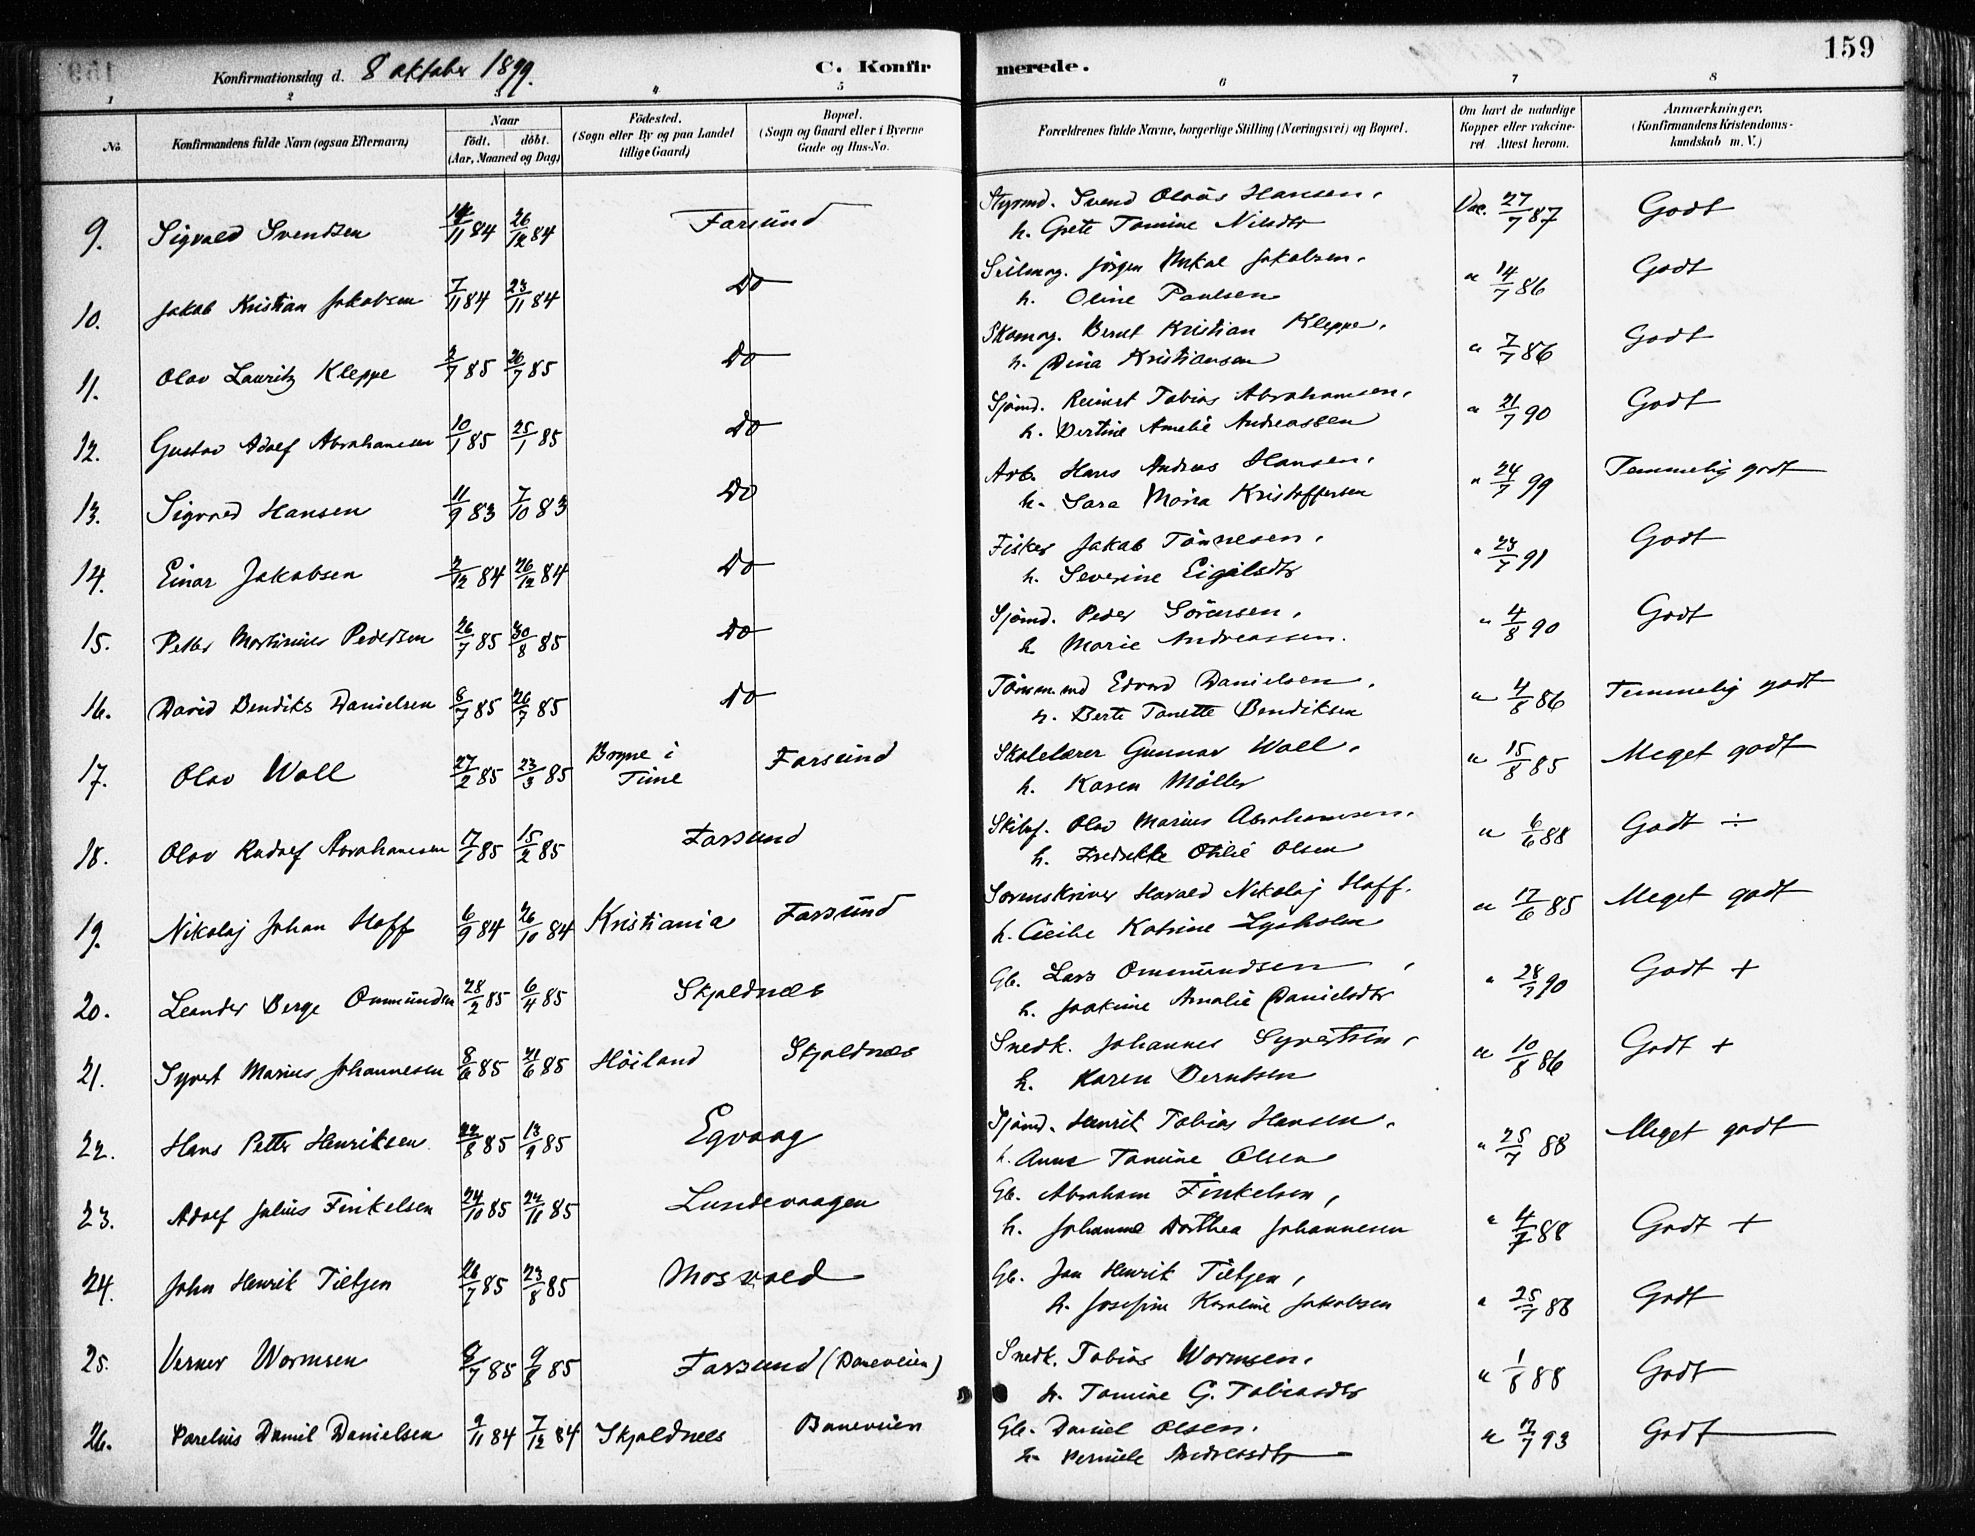 159
Konfirmationsdag d. 8 oktober 1899. C. Konfir merede.
1 2 3 4 5 6 7 8
No. Konfirmandens fulde Navn (ogsaa Efternavn) Naar født. døbt. (Aar, Maaned og Dag) Födested. (Sogn eller By og paa Landet tillige Gaard) Bopæl. (Sogn og Gaard eller i Byerne Gade og Hus-No. Forældrenes fulde Navne, borgerlige Stilling (Næringsvei) og Bopæl. Om havt de naturlige Kopper eller vakcineret Attest herom. Anmærkninger. (Konfirmandens Kristendomskundskab m. V.)
9. Sigvald Svendsen 14/11 84 26/12 84 Farsund Styrmd. Svend Olaus Hansen, Vac. 27/7 87 Godt
h. Grete Tomine Nilsdtr
10. Jakob Kristian Jakobsen 7/11 84 23/11 84 Do Seilmag. Jörgen Mikal Jakobsen, " 14/7 86 Godt
h. Oline Paulsen
11. Olav Lauritz Kleppe 2/7 85 26/7 85 Do Skomag. Bernt Kristian Kleppe, " 7/7 86 Godt
h. Dina Kristiansen
12. Gustav Adolf Abrahamsen 10/1 85 25/1 85 Do Sjömd. Reinert Tobias Abrahamsen, " 21/7 90 Godt
h. Bertine Amalie Andreassen
13. Sigvald Hansen 11/9 83 7/10 83 Do Arb. Hans Andreas Hansen, " 24/7 99 Temmelig godt
h. Sara Maria Kristoffersen
14. Einar Jakobsen 2/12 84 26/12 84 Do Fisker Jakob Tönnesen, " 23/7 91 Godt
h. Severine Eigilsdtr
15. Petter Martinius Pedersen 26/7 85 30/8 85 Do Sjömd. Peder Sörensen, " 4/8 90 Godt
h. Marie Andreassen.
16. David Bendiks Danielsen 8/7 85 26/7 85 Do Tömmermd Edvard Danielsen, " 4/8 86 Temmelig godt
h. Berte Tonette Bendiksen
17. Olav Woll 27/2 85 23/3 85 Bryne i Time Farsund Skolelærer Gunnar Woll, " 15/8 85 Meget godt
h. Karen Möller
18. Olav Rudolf Abrahamsen 17/1 85 15/2 85 Farsund Skibsf. Olav Marius Abrahamsen, " 6/6 88 Godt ÷
h. Fredrikke Otilie Olsen
19. Nikolaj Johan Hoff 6/9 84 26/10 84 Kristiania Farsund Sorenskriver Harald Nikolaj Hoff, " 17/6 85 Meget godt
h. Cecilie Katrine Lysholm
20. Leander Berge Ommundsen 28/2 85 6/4 85 Skjoldnæs Gb. Lars Ommundsen, " 28/7 90 Godt +
h. Joakime Amalie Danielsdtr
21. Syvert Marius Johannesen 8/6 85 21/6 85 Höiland Skjoldnæs Snedk. Johannes Syvertsen, " 10/8 86 Godt +
h. Karen Berntsen
22. Hans Petter Henriksen 22/8 85 13/9 85 Eqvaag Sjömd. Henrik Tobias Hansen, " 25/7 88 Meget godt
h. Anne Tomine Olsen
23. Adolf Julius Finkelsen 24/10 85 22/11 85 Lundevaagen Gb. Abraham Finkelsen, " 4/7 88 Godt +
h. Johanne Dorthea Johannesen
24. John Henrik Tietjen 26/7 85 23/8 85 Mosvold Gb. Jan Henrik Tietjen, " 25/7 88 Godt
h. Josefine Karoline Jakobsen
25. Verner Wormsen 8/7 85 9/8 85 Farsund (Baneveien) Snedk. Tobias Wormsen, " 1/8 88 Godt
h. Tomine G. Tobiasdtr
26. Parelius Daniel Danielsen 2/11 84 7/12 84 Skjoldnæs Baneveien Gb. Daniel Olsen. " 12/7 93 Godt
h. Pernille Andreasdtr